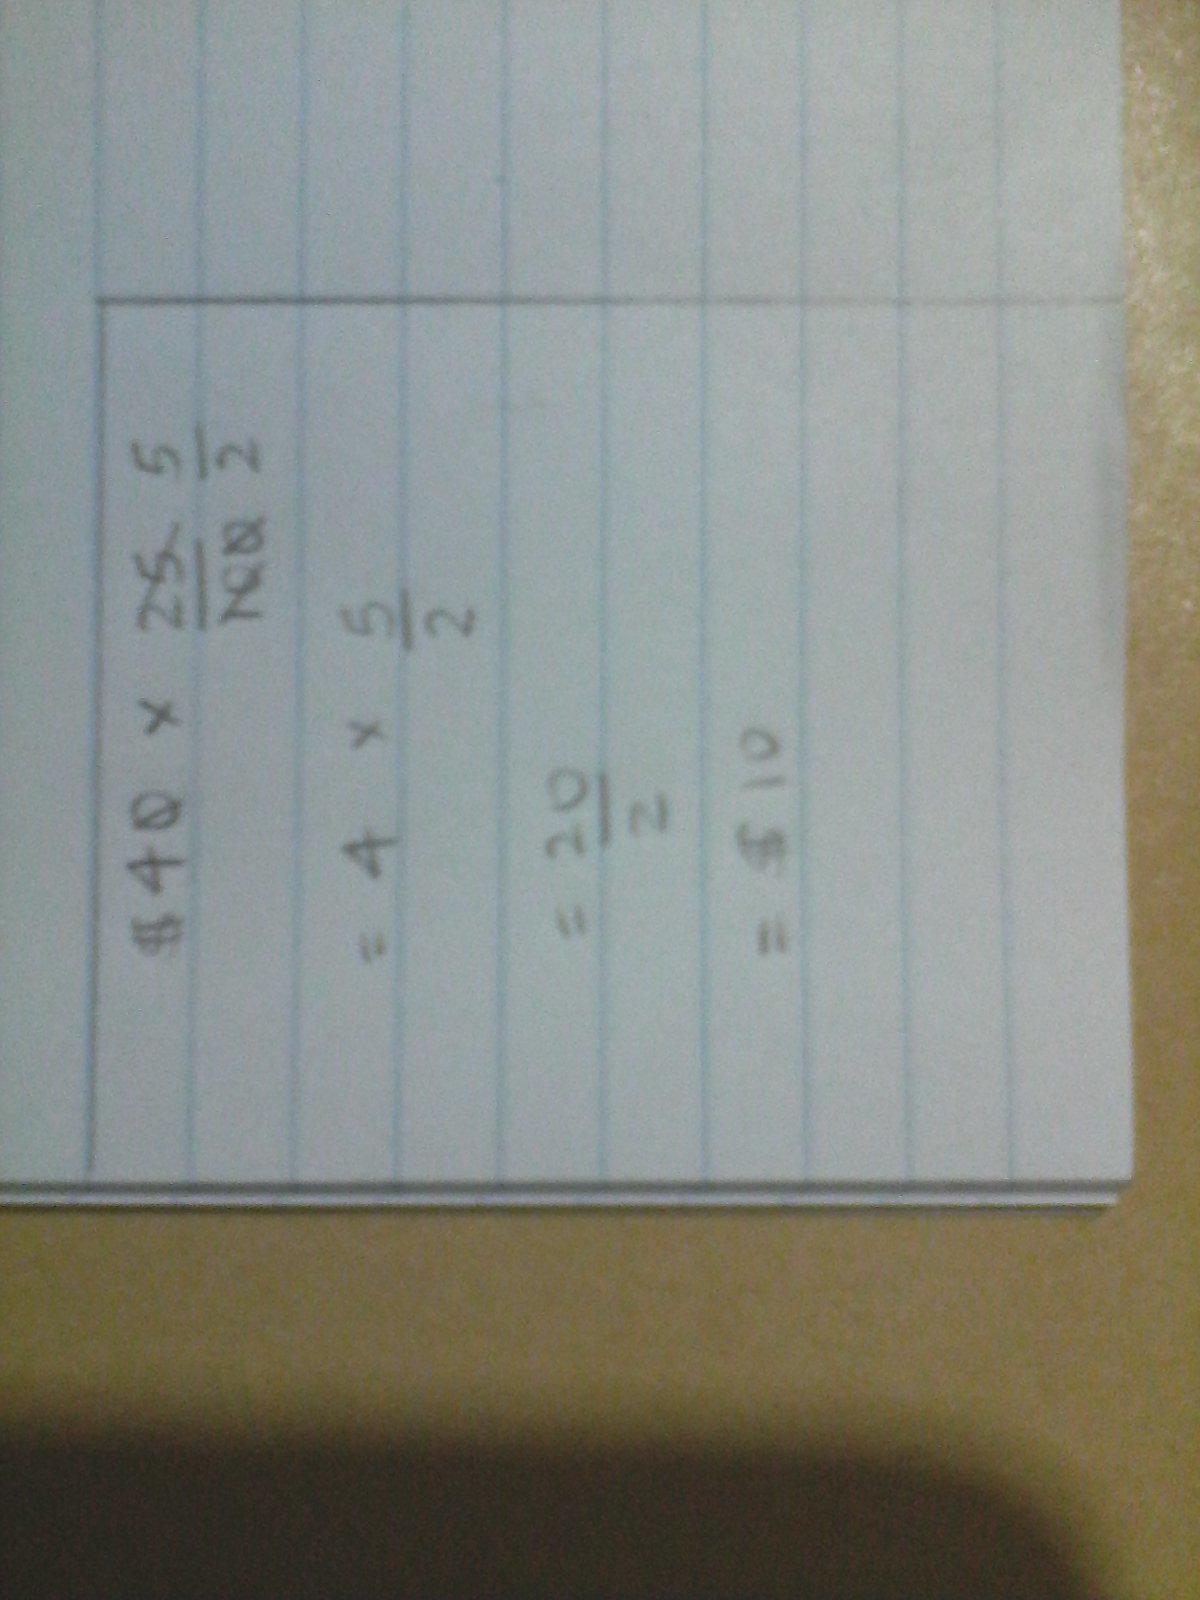 $40 x 25/100 5/2
= 4 x 5/2
= 20/2
= $10